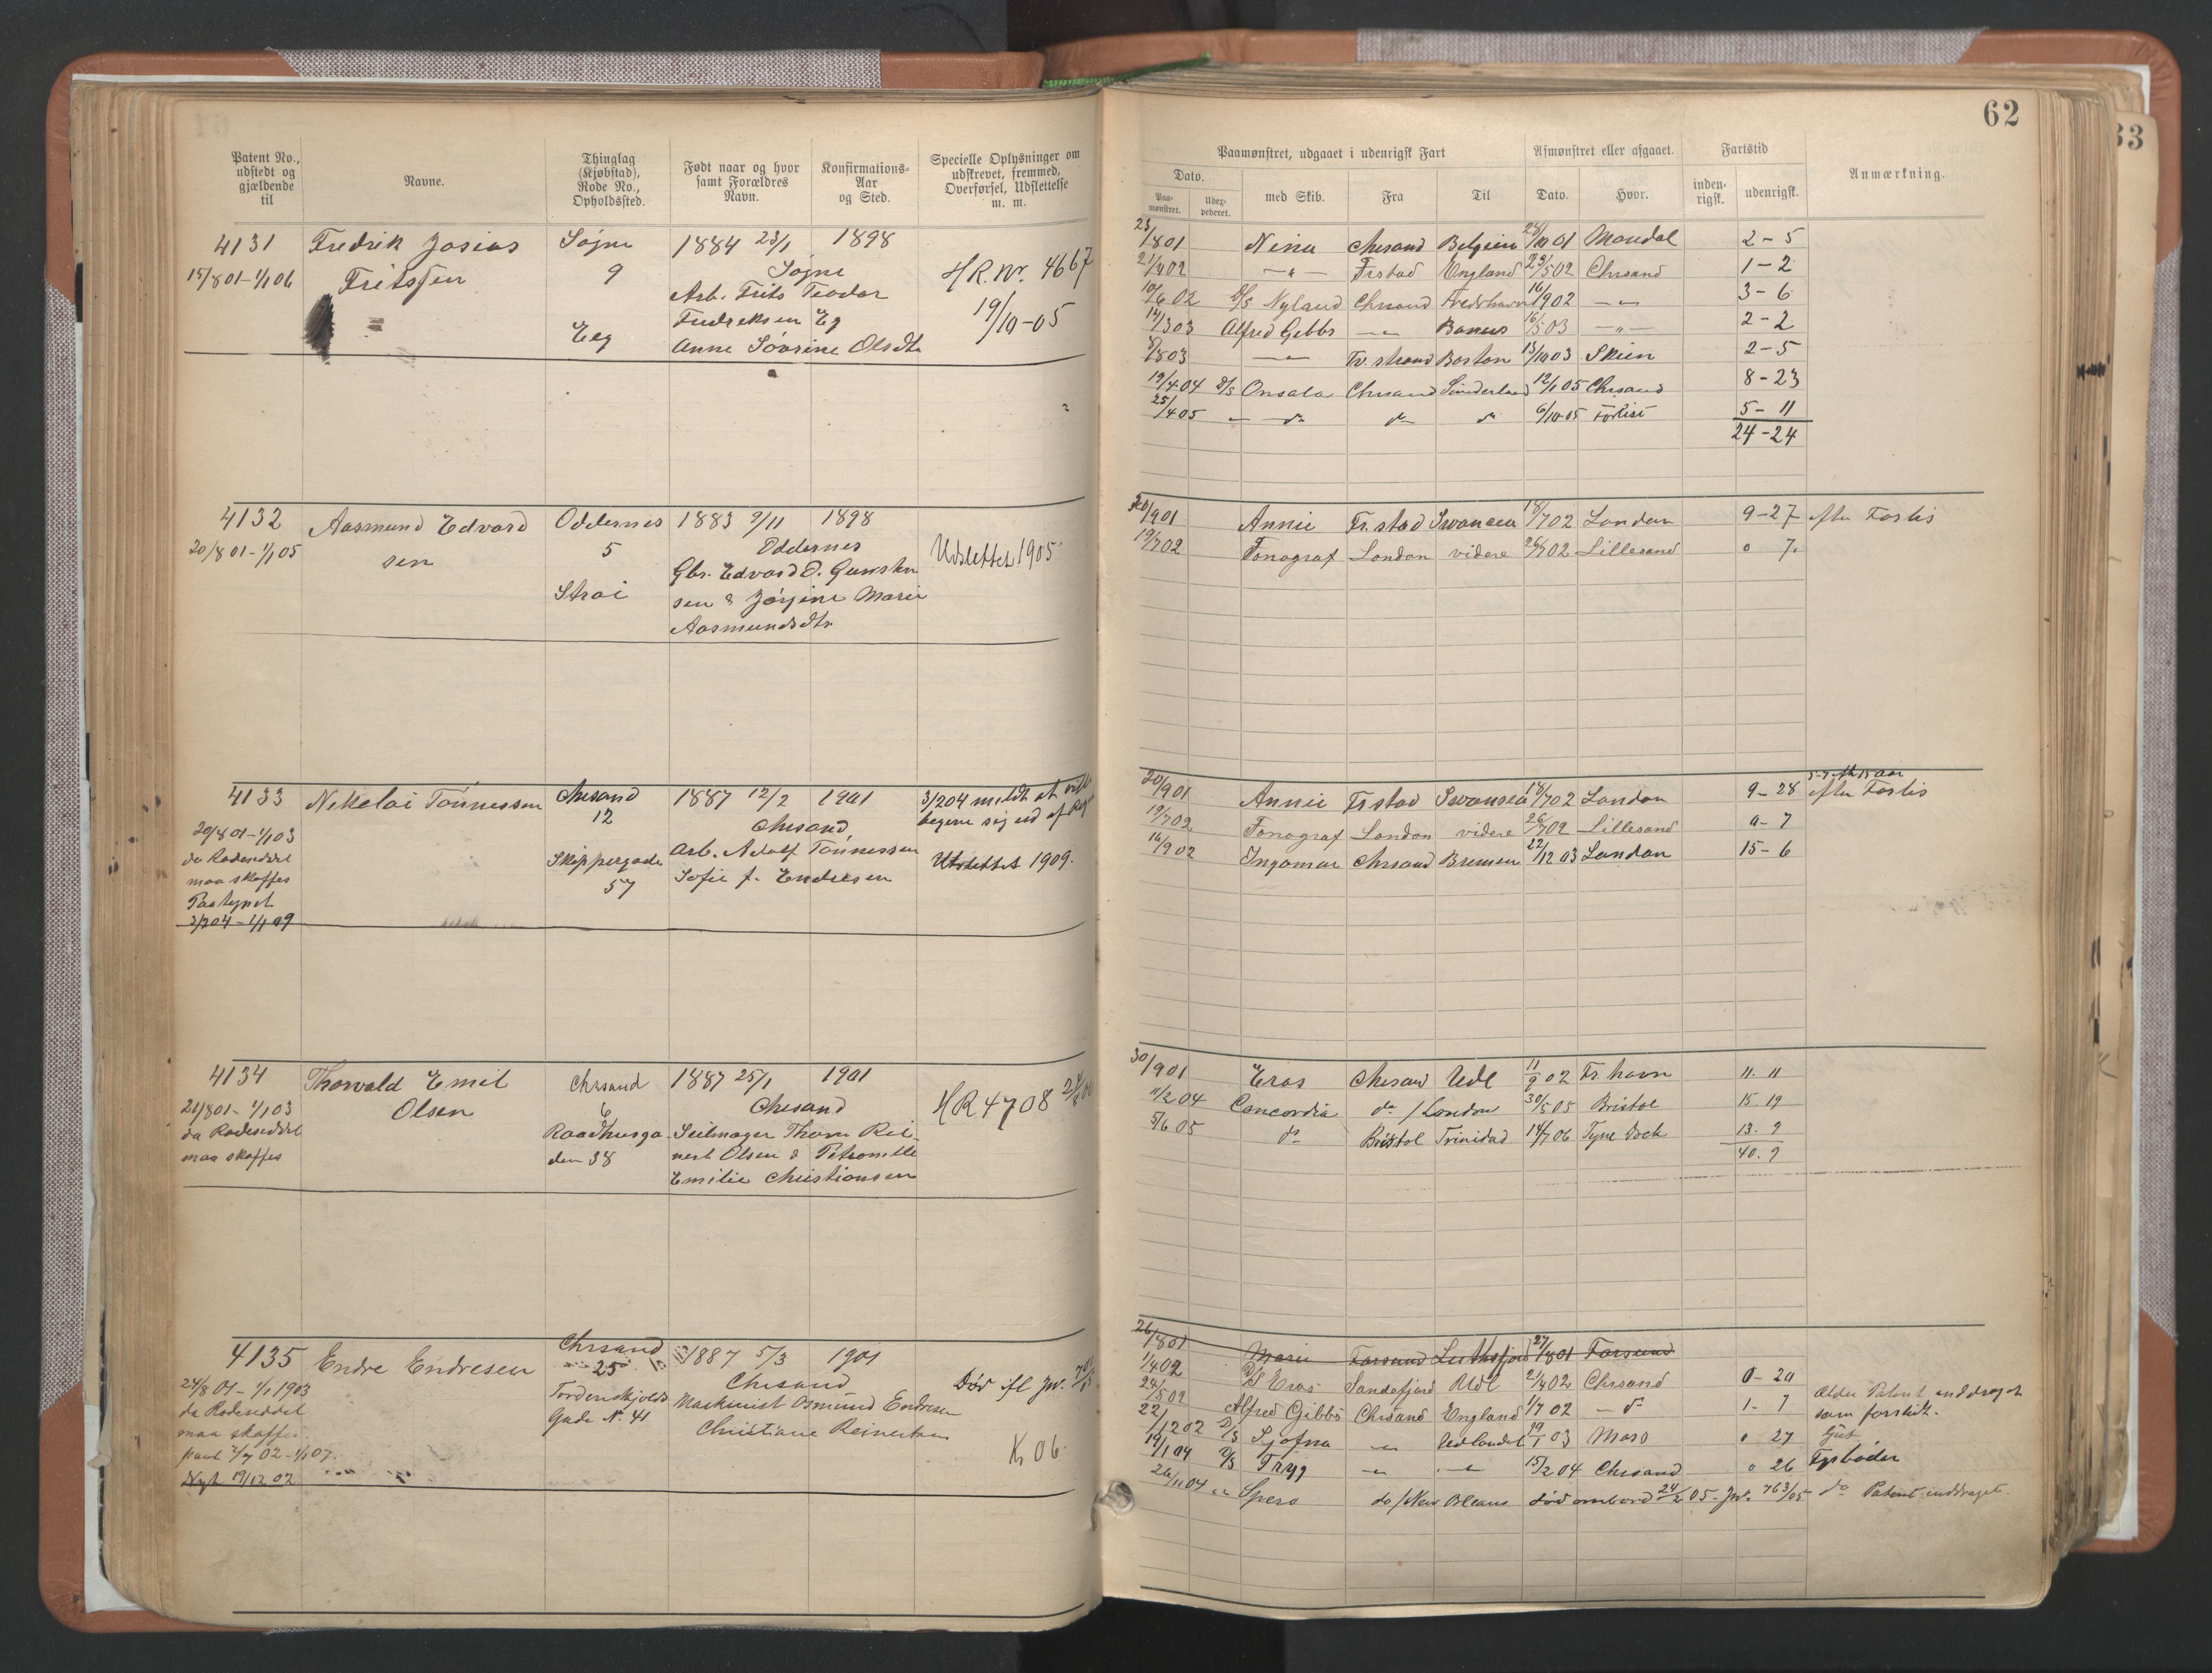 62
Patent No., udstedt og gjældende til
Navne.
Thinglag (Kjøbstad), Rode No., Opholdssted.
Født naar og hvor samt Forældres Navn.
Konfirmations-Aar og Sted.
Specielle Oplysninger om udskrevet, fremmed, Overførsel, Udslettelse m. m.
Paamønstret, udgaaet i udenrigsk Fart
Afmønstret eller afgaaet.
Fartstid
Anmærkning.
Dato.
Paa-mønstret.
Udex-pederet.
med Skib.
Fra
Til
Dato.
Hvor.
inden-rigsk.
udenrigsk.
4131 Fredrik Josias Søgne 1884 23/1 1898
15/8 01-1/1 06 Fritssen 9 Søgne H.R. Nr. 4667
Arb. Frits Teodor
Fredreksen Eg 19/10-05
Eeg Anne Sørine Olsdtr
23/8 01 Nina Chrsand Belgien 28/10 01 Mandal 2-5
21/4 02 -"- Frstad England 23/5 02 Chrsand 1-2
10/6 02 D/S Nyland Chrsand Fredrhavn 16/9 02 -"- 3-6
14/3 03 Alfred Gibbs -"- 16/5 03 -"- 2-2
/8 03 -"- Tv.strand Boston 13/10 03 Skien 2-5
19/4 04 D/S Onsala Chrsand Sunderland 12/1 05 Chrsand 8-23
25/4 05 " do do do 6/10 05 Forlist 5-11
24-24
4132 Aasmund Edvard Oddernes 1883 9/11 1898
20/8 01-1/1 05 sen 5 Oddernes Udslettet 1905
Gbr. Edvard O. Gunsten
Strai sen & Jørgine Marie
Aasmundsdtr
20/9 01 Annie Fr.stad Swansea 18/7 02 London 9-27 efter Forlis
19/7 02 Fonograf London videre 26/7 02 Lillesand 0 7.
4133 Nikolai Tönnessen Chrsand 1887 12/2 1901 3/2 04 meldt at ville
20/8 01-1/1 03 12 Chrsand, begive sig ud af
da Rodeseddel Skippergade Arb. Adolf Tönnessen
maa skaffes 57 Sofie f. Endresen Udslettet 1909.
Paategnet
3/2 04-1/1 09
20/9 01 Annie Frstad Swansea 18/7 02 London 9-28 efter Forlis
19/7 02 Fonograf London videre 26/7 02 Lillesand 0-7
16/9 02 Ingomar Chrsand Bremen 22/12 03 London 15-6
4134 Thorvald Emil Chrsand 1887 25/1 1901
21/8 01-1/1 03 Olsen 6 Chrsand HR 4708
da Rodeseddel Raadhusga Seilmager Thom Rei-
maa skaffes den 38 nert Olsen & Petronille
Emilie Christiansen
30/9 01 Eros Chrsand Udl 11/9 02 Fr.havn 11. 11
11/2 04 Concordia do /London 30/5 05 Bristol 15. 19
5/6 05 do Bristol Trinidad 14/7 06 Tyne Dock 13. 9
40. 9
4135 Endre Endresen Chrsand 1887 5/3 1901
24/8 01-1/1 1903 25 Chrsand Død ifl Jv.
da Rodeseddel Tordenskjolds Maskinist Osmund Endresen
maa skaffes Gade N. 41 Christiane Reinertsen
2/7 02-1/1 07. K 06.
Nyt 19/12 02
26/8 01 Marie Farsund 27/8 01 Farsund
1/4 02 D/S Eros Sandefjord Udl 21/4 02 Chrsand 0-20
24/5 02 Alfred Gibbs Chrsand England 1/7 02 - do 1-7 Ældre Patent inddraget som forslidt.
22/12 02 D/S Sjofna -"- Udlandet 19/1 03 Moss 0 27 Gut
19/1 04 D/S Trygg -"- -"- 15/2 04 Chrsand 0 26 Fyrbøder
26/11 04 " Spero do /New Orleans død ombord 24/2 05 - Jv. 763/05 do Patent inddraget.